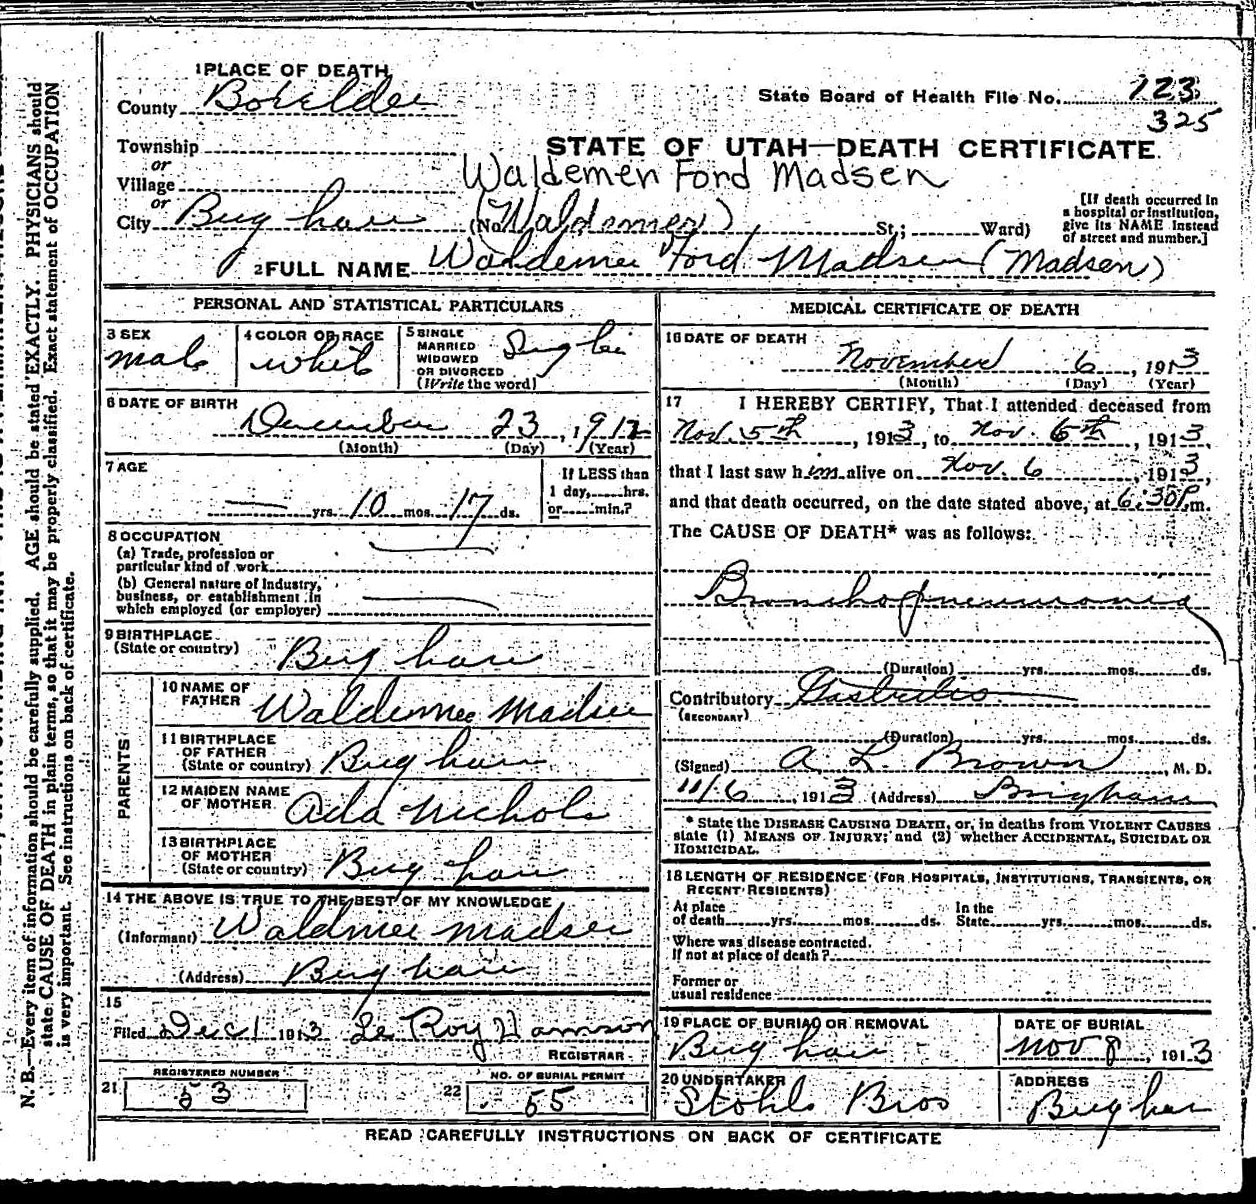 N. B.—Every item of information should be carefully supplied. AGE should be stated EXACTLY. PHYSICIANS should
state CAUSE OF DEATH in plain terms, so that it may be properly classified. Exact statement of OCCUPATION
is very important. See instructions on back of certificate.
1 PLACE OF DEATH
County Boxelder
State Board of Health File No. 123
325
Township
or
Village
or
City Brigham
STATE OF UTAH—DEATH CERTIFICATE.
Waldemer Ford Madsen
(No. (Waldemer) St.; Ward)
[If death occurred in
a hospital or institution,
give its NAME instead
of street and number.]
2 FULL NAME Waldemer Ford Madsen (Madsen)
PERSONAL AND STATISTICAL PARTICULARS
3 SEX
male
4 COLOR OR RACE
white
5 SINGLE
MARRIED
WIDOWED
OR DIVORCED
(Write the word)
Single
6 DATE OF BIRTH
December 23, 1912
(Month) (Day) (Year)
7 AGE
— yrs. 10 mos. 17 ds.
If LESS than
1 day, hrs.
or min.?
8 OCCUPATION
(a) Trade, profession or
particular kind of work
(b) General nature of industry,
business, or establishment in
which employed (or employer)
9 BIRTHPLACE
(State or country) Brigham
PARENTS
10 NAME OF
FATHER Waldemer Madsen
11 BIRTHPLACE
OF FATHER
(State or country) Brigham
12 MAIDEN NAME
OF MOTHER Ada Nichols
13 BIRTHPLACE
OF MOTHER
(State or country) Brigham
14 THE ABOVE IS TRUE TO THE BEST OF MY KNOWLEDGE
(Informant) Waldemer Madsen
(Address) Brigham
15
Filed Dec 1 1913 Le Roy
REGISTRAR
21 REGISTERED NUMBER
53
22 NO. OF BURIAL PERMIT
55
MEDICAL CERTIFICATE OF DEATH
16 DATE OF DEATH
November 6, 1913
(Month) (Day) (Year)
17 I HEREBY CERTIFY, That I attended deceased from
Nov. 5th, 1913, to Nov. 6th, 1913,
that I last saw him alive on Nov. 6, 1913,
and that death occurred, on the date stated above, at 6:30 P.m.
The CAUSE OF DEATH* was as follows:
Bronchopneumonia
(Duration) yrs. mos. ds.
Contributory Gastritis
(SECONDARY)
(Duration) yrs. mos. ds.
(Signed) A L Brown, M. D.
11/6, 1913 (Address) Brigham
* State the DISEASE CAUSING DEATH, or, in deaths from VIOLENT CAUSES
state (1) MEANS OF INJURY; and (2) whether ACCIDENTAL, SUICIDAL OR
HOMICIDAL.
18 LENGTH OF RESIDENCE (FOR HOSPITALS, INSTITUTIONS, TRANSIENTS, OR
RECENT RESIDENTS)
At place
of death yrs. mos. ds.
In the
State yrs. mos. ds.
Where was disease contracted,
If not at place of death?
Former or
usual residence
19 PLACE OF BURIAL OR REMOVAL
Brigham
DATE OF BURIAL
Nov 8, 1913
20 UNDERTAKER
Stohls Bros
ADDRESS
Brigham
READ CAREFULLY INSTRUCTIONS ON BACK OF CERTIFICATE